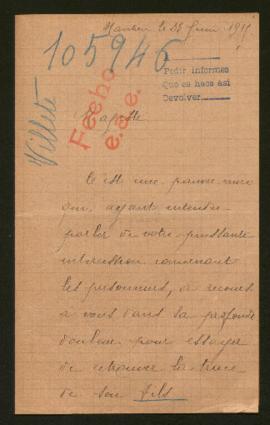 le 23 Juin 1915
105946
Villete
Pedir informes
Que se hace así
Devolver
Fecho
e.a.e.
Majesté
C'est une pauvre mère
qui, ayant entendu
parler de votre puissante
intercession concernant
les prisonniers, a recours
à vous dans sa profonde
douleur pour essayer
de retrouver la trace
de son fils